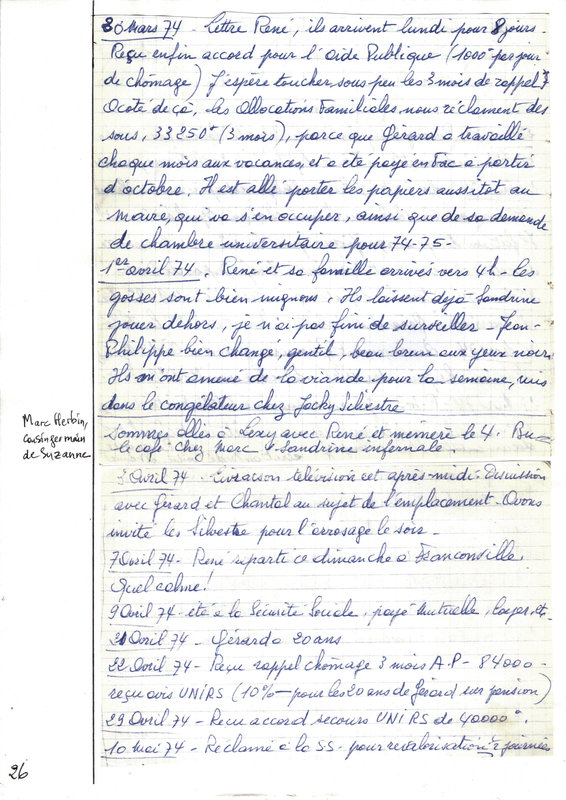 30 Mars 74 - Lettre René, ils arrivent lundi pour 8 jours -
Reçu enfin accord pour l'aide Publique (1000° par jour
de chomage) J'espère toucher, sous peu les 3 mois de rappel
A côté de ça, les Allocations Familiales, nous réclament des
sous, 33250° (3 mois), parce que Gérard a travaillé
chaque mois aux vacances, et a été payé en Fac à partir
d'octobre. Il est allé porter les papiers aussitot au
maire, qui va s'en occuper, ainsi que de sa demande
de chambre universitaire pour 74-75-
1er avril 74. René et sa famille arrivés vers 4h - les
gosses sont bien mignons. Ils laissent dejà Sandrine
jouer dehors, je n'ai pas fini de surveiller - Jean-
Philippe bien changé, gentil, beau brun aux yeux noirs
Ils m'ont amené de la viande pour la semaine, mis
dans le congélateur chez Jacky Silvestre
Marc Herbin,
cousin germain
de Suzanne
Sommes allés à Lexy avec René et mémère le 4. Bu
le café chez Marc - Sandrine infernale.
3 Avril 74 - Livraison télévision cet après-midi. Discussion
avec Gérard et Chantal au sujet de l'emplacement - Avons
invité les Silvestre pour l'arrosage le soir -
7 Avril 74 - René reparti ce dimanche à Franconville
Quel calme!
9 Avril 74 - été à la Sécurité Sociale, payé Mutuelle, loyer, etc.
21 Avril 74 - Gérard a 20 ans
22 Avril 74 - Reçu rappel chômage 3 mois A.P - 84000 -
reçu avis UNIRS (10% - pour les 20 ans de Gérard sur pension)
29 Avril 74 - Reçu accord secours UNIRS de 40000°.
10 Mai 74 - Réclamé à la SS. pour revalorisation 2 journées
26